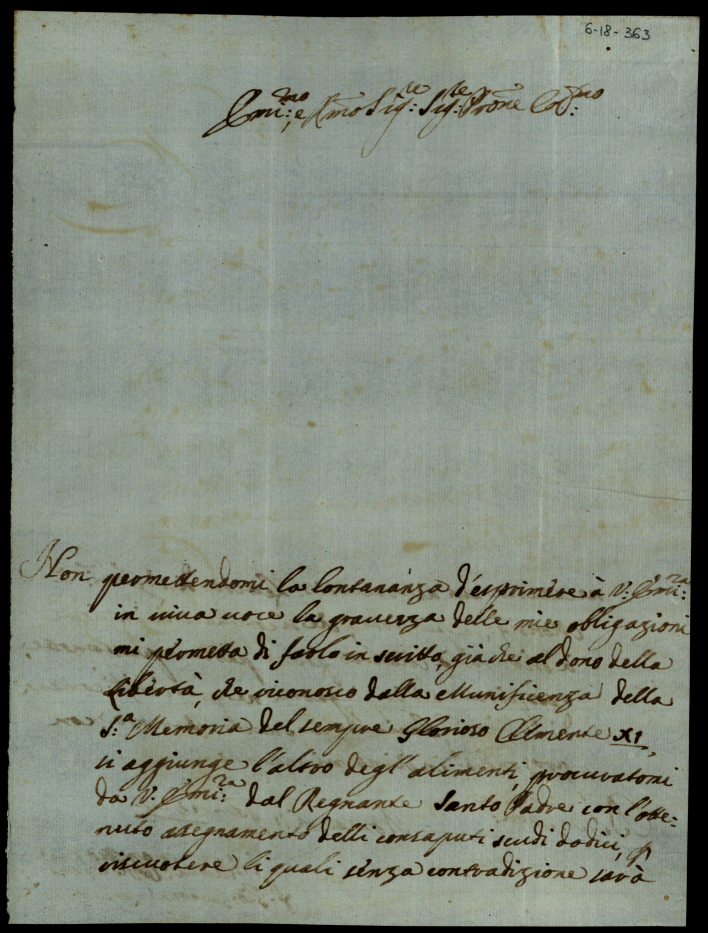 6-18-363
Emi:mo e Rmo Sig:re Sig:re Prone Col:mo
Non permettendomi la lontananza d'esprimere à V: Emi:za
in viua uoce la grauezza delle mie obligazioni
mi permetta di farlo in scritto, già che al dono della
libertà, che riconosco dalla Munificenza della
S:a Memoria del sempre Glorioso Clemente XI,
si aggiunge l'altro degl'alimenti, procuratomi
da V: Emi:za dal Regnante Santo Padre con l'otte-
nuto assegnamento delli consaputi scudi dodici, p
riscuotere li quali senza contradizione sarà